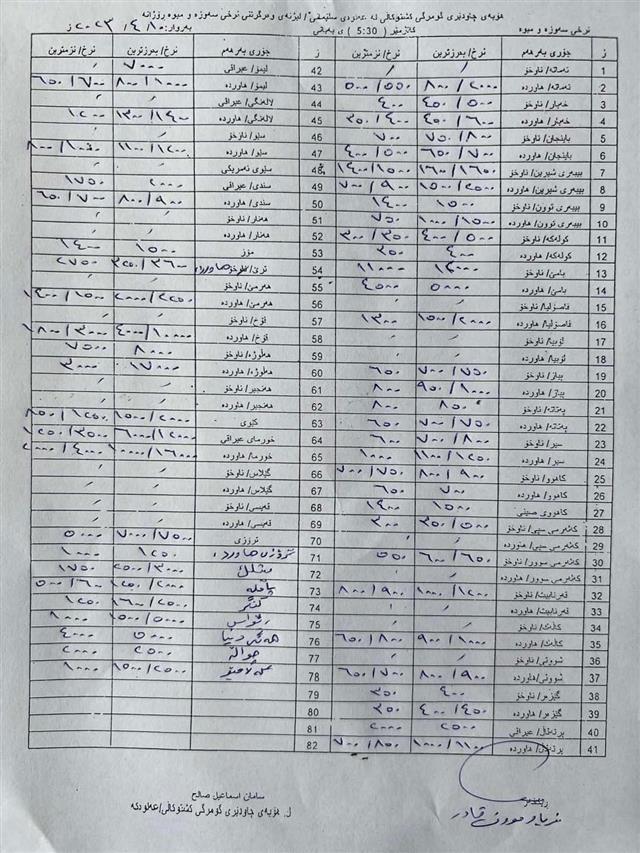 هۆبەی چاودێری گومرگی کشتوکاڵی لە عەلوەی سلێمانی / لیژنەی وەرگرتنی نرخی سەوزە و میوە ڕۆژانە
نرخی سەوزە و میوە کاتژمێر ( 5:30 ) ی بەیانی بەروار: ٢٠٢٣/٤/١٠ ز
ز جۆری بەرهەم نرخ/ بەرزترین نرخ/ نزمترین
1 تەماتە/ ناوخۆ / /
2 تەماتە/ هاوردە ٨٠٠/١٠٠٠ ٥٠٠/٥٥٠
3 خەیار/ ناوخۆ ٤٥٠/٥٠٠ ٤٠٠
4 خەیار/ هاوردە ٤٥٠/٦٠٠ ٣٥٠/٤٠٠
5 باینجان/ ناوخۆ ٧٥٠/٨٠٠ ٧٠٠
6 باینجان/ هاوردە ٦٥٠/٧٠٠ ٤٠٠/٥٠٠
7 بیبەری شیرین/ ناوخۆ ١٦٠٠/١٦٥٠ ١٤٠٠/١٥٠٠
8 بیبەری شیرین/ هاوردە ١٥٠٠/٢٥٠٠ ٧٠٠/٩٠٠
9 بیبەری توون/ ناوخۆ ١٥٠٠ ١٤٠٠
10 بیبەری توون/ هاوردە ١٠٠٠/١٥٠٠ ٧٥٠
11 کولەکە/ ناوخۆ ٤٠٠/٥٠٠ ٣٠٠/٣٥٠
12 کولەکە/ هاوردە ٤٠٠ ٣٥٠
13 بامێ/ ناوخۆ ١٣٠٠٠ ١١٠٠٠
14 بامێ/ هاوردە ٥٠٠٠ ٤٥٠٠
15 فاسۆلیا/ ناوخۆ / /
16 فاسۆلیا/ هاوردە ١٥٠٠/٢٠٠٠ ١٣٠٠
17 لۆبیا/ ناوخۆ / /
18 لۆبیا/ هاوردە / /
19 پیاز/ ناوخۆ ٧٠٠/٧٥٠ ٦٥٠
20 پیاز/ هاوردە ٩٥٠/١٠٠٠ ٨٠٠
21 پەتاتە/ ناوخۆ ٨٥٠ ٨٠٠
22 پەتاتە/ هاوردە ٧٠٠/٧٥٠ ٦٥٠
23 سیر/ ناوخۆ ٧٠٠/٨٠٠ ٦٠٠
24 سیر/ هاوردە ١١٠٠/١٢٥٠ ١٠٠٠
25 کاهوو/ ناوخۆ ٨٠٠/٩٠٠ ٧٠٠/٧٥٠
26 کاهوو/ هاوردە ٧٠٠ ٦٥٠
27 کاهووی صینی ١٥٠٠ ١٤٠٠
28 کەلەرمی سپی/ ناوخۆ ٣٥٠/٥٠٠ ٣٠٠
29 کەلەرمی سپی/ هاوردە / /
30 کەلەرمی سوور/ ناوخۆ ٦٠٠/٦٥٠ ٥٥٠
31 کەلەرمی سوور/ هاوردە / /
32 قەرنابیت/ ناوخۆ ١٠٠٠/١٢٠٠ ٨٠٠/٩٠٠
33 قەرنابیت/ هاوردە / /
34 کاڵەک/ ناوخۆ / /
35 کاڵەک/ هاوردە ٩٠٠/١٠٠٠ ٦٥٠/٨٠٠
36 شووتی/ ناوخۆ / /
37 شووتی/ هاوردە ٨٠٠/٩٠٠ ٦٥٠/٧٠٠
38 گێزەر/ ناوخۆ ٤٠٠ ٣٥٠
39 گێزەر/ هاوردە ٤٠٠/٤٥٠ ٣٥٠
40 پرتەقاڵ/ عیراقی ٢٥٠٠ ٢٠٠٠
41 پرتەقاڵ/ هاوردە ١٠٠٠/١١٠٠ ٧٠٠/٨٥٠
ز جۆری بەرهەم نرخ/ بەرزترین نرخ/ نزمترین
42 لیمۆ/ عیراقی ٧٠٠٠ /
43 لیمۆ/ هاوردە ٨٠٠/١٠٠٠ ٦٥٠/٧٠٠
44 لالەنگی/ عیراقی / /
45 لالەنگی/ هاوردە ١٣٠٠/١٤٠٠ ١٢٠٠
46 سێو/ ناوخۆ / /
47 سێو/ هاوردە ١١٠٠/١٢٠٠ ٨٠٠/١٠٥٠
48 سێوی ئەمریکی / /
49 سندی/ عیراقی ٢٠٠٠ ١٧٥٠
50 سندی/ هاوردە ٨٠٠/٩٠٠ ٦٥٠/٧٠٠
51 هەنار/ ناوخۆ / /
52 هەنار/ هاوردە / /
53 مۆز ١٥٠٠ ١٤٠٠
54 ترێ/ هاوردە ٣٢٥٠/٣٦٠٠ ٢٧٥٠
55 هەرمێ/ ناوخۆ / /
56 هەرمێ/ هاوردە ٢٠٠٠/٢٢٥٠ ١٤٠٠/١٥٠٠
57 قۆخ/ ناوخۆ / /
58 قۆخ/ هاوردە ٤٠٠٠/١٠٠٠٠ ١٨٠٠/٣٠٠٠
59 هەڵوژە/ ناوخۆ ٨٠٠٠ ٧٥٠٠
60 هەڵوژە/ هاوردە ١٧٠٠٠ ٣٠٠٠
61 هەنجیر/ ناوخۆ / /
62 هەنجیر/ هاوردە / /
63 کێوی ١٥٠٠/٢٠٠٠ ٨٥٠/١٢٥٠
64 خورمای عیراقی ٦٠٠٠/١٢٠٠٠ ١٢٥٠/٣٥٠٠
65 خورما/ هاوردە ١٠٠٠٠/١٦٠٠٠ ٢٠٠٠/٤٠٠٠
66 گێلاس/ ناوخۆ / /
67 گێلاس/ هاوردە / /
68 قەیسی/ ناوخۆ / /
69 قەیسی/ هاوردە / /
70 تروزی ٧٠٠٠/٧٥٠٠ ٥٠٠٠
71 تروزی هاوردە ١٢٥٠ ١٠٠٠
72 شلک ٢٥٠٠/٣٠٠٠ ١٧٥٠
73 پاقلە ١٢٥٠/٢٠٠٠ ٥٥٠/٦٠٠
74 کنگر ١٦٠٠/٢٥٠٠ ١٢٥٠
75 ڕێواس ١٥٠٠/٥٠٠٠ ١٠٠٠
76 ٥٠٠٠ ٤٠٠٠
77 ٢٥٠٠ ٢٠٠٠
78 ١٥٠٠/٢٥٠٠ ١٠٠٠
79
80
81
82
سامان اسماعیل صالح
ل. هۆبەی چاودێری گومرگی کشتوکاڵی/عەلوەکە